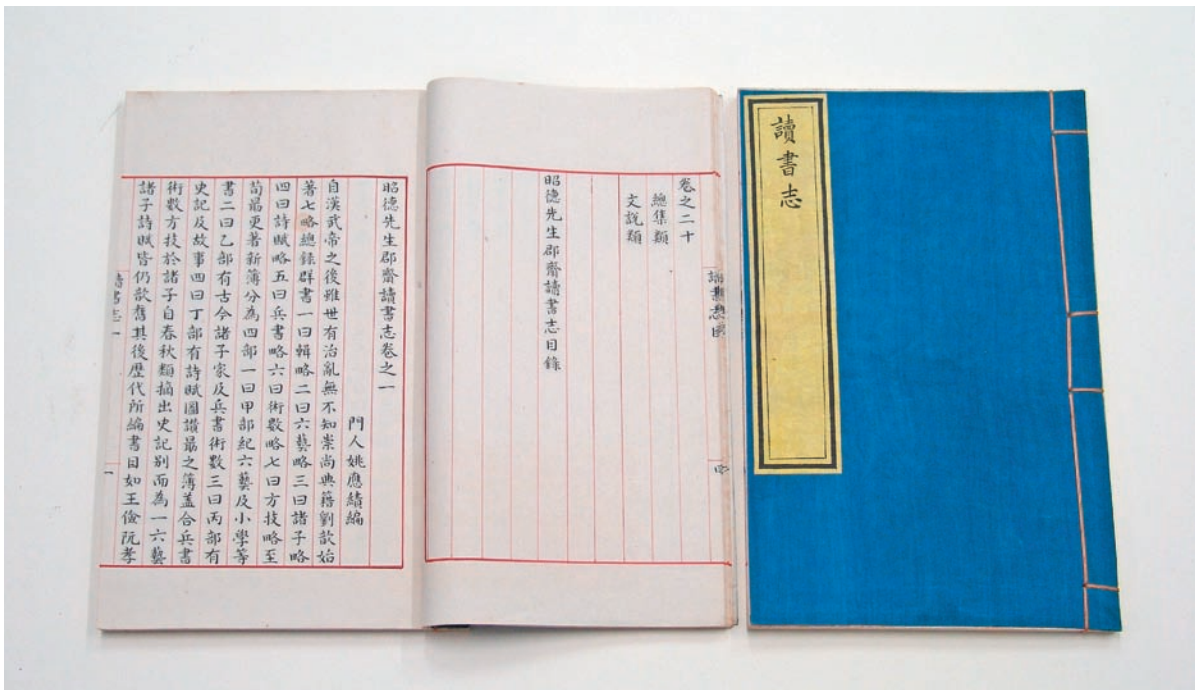 讀書志
卷之二十
總集類
文說類
昭德先生郡齋讀書志目錄
昭德先生郡齋讀書志卷之一
門人姚應績編
自漢武帝之後雖世有治亂無不知崇尚典籍劉歆始
著七略總錄群書一曰輯略二曰六藝略三曰諸子略
四曰詩賦略五曰兵書略六曰術數略七曰方技略至
荀勗更著新簿分為四部一曰甲部紀六藝及小學等
書二曰乙部有古今諸子家及兵書術數三曰丙部有
史記及故事四曰丁部有詩賦圖讚勗之簿蓋合兵書
術數方技於諸子自春秋類摘出史記別而為一六藝
諸子詩賦皆仍歆舊其後歷代所編書目如王儉阮孝
讀書志一
一